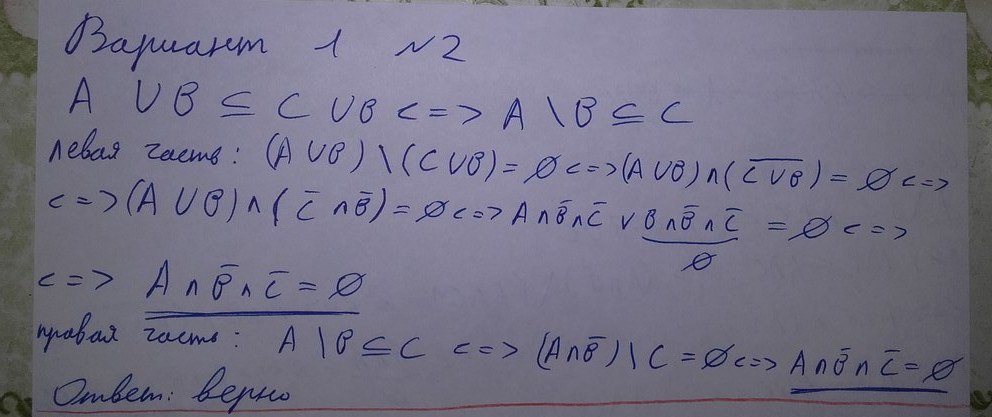 Вариант 1 №2
A ∪ B ⊆ C ∪ B <=> A \ B ⊆ C
левая часть: (A ∪ B) \ (C ∪ B) = ∅ <=> (A ∪ B) ∩ (C̅ ∪̅ B̅) = ∅ <=>
<=> (A ∪ B) ∩ (C̅ ∩ B̅) = ∅ <=> A ∩ B̅ ∩ C̅ ∪ B ∩ B̅ ∩ C̅ = ∅ <=>
∅
<=> A ∩ B̅ ∩ C̅ = ∅
правая часть: A \ B ⊆ C <=> (A ∩ B̅) \ C = ∅ <=> A ∩ B̅ ∩ C̅ = ∅
Ответ: верно